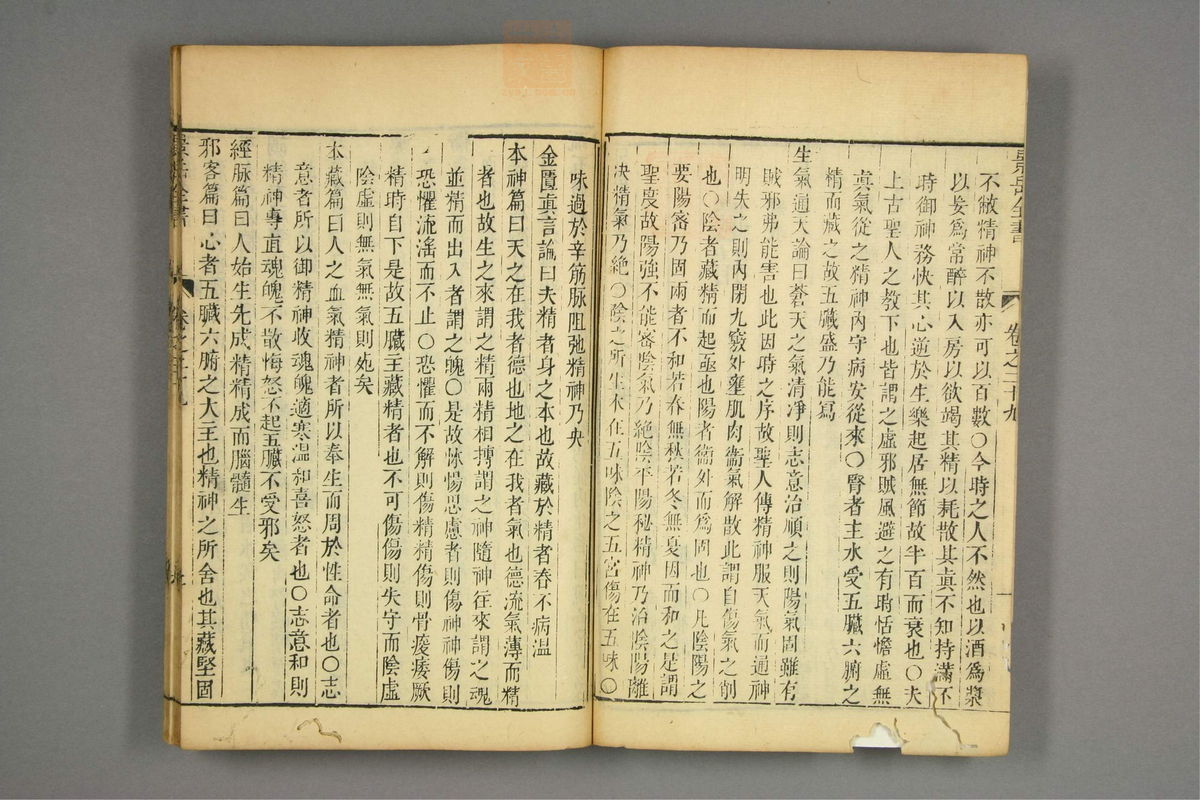 景岳全書
卷之二十九
不敝精神不散亦可以百數○今時之人不然也以酒爲漿
以妄爲常醉以入房以欲竭其精以耗散其眞不知持滿不
時御神務快其心逆於生樂起居無節故半百而衰也○夫
上古聖人之教下也皆謂之虛邪賊風避之有時恬憺虛無
眞氣從之精神內守病安從來○腎者主水受五臟六腑之
精而藏之故五臟盛乃能寫
生氣通天論曰蒼天之氣清凈則志意治順之則陽氣固雖有
賊邪弗能害也此因時之序故聖人傳精神服天氣而通神
明失之則內閉九竅外壅肌肉衞氣解散此謂自傷氣之削
也○陰者藏精而起亟也陽者衞外而爲固也○凡陰陽之
要陽密乃固兩者不和若春無秋若冬無夏因而和之是謂
聖度故陽強不能密陰氣乃絕陰平陽秘精神乃治陰陽離
决精氣乃絕○陰之所生本在五味陰之五宮傷在五味○
味過於辛筋脉阻弛精神乃央
金匱眞言論曰夫精者身之本也故藏於精者春不病温
本神篇曰天之在我者德也地之在我者氣也德流氣薄而精
者也故生之來謂之精兩精相搏謂之神隨神往來謂之魂
並精而出入者謂之魄○是故怵惕思慮者則傷神神傷則
恐懼流淫而不止○恐懼而不解則傷精精傷則骨痠痿厥
精時自下是故五臟主藏精者也不可傷傷則失守而陰虛
陰虛則無氣無氣則死矣
本藏篇曰人之血氣精神者所以奉生而周於性命者也○志
意者所以御精神收魂魄適寒温和喜怒者也○志意和則
精神專直魂魄不散悔怒不起五臟不受邪矣
經脉篇曰人始生先成精精成而腦髓生
邪客篇曰心者五臟六腑之大主也精神之所舍也其藏堅固